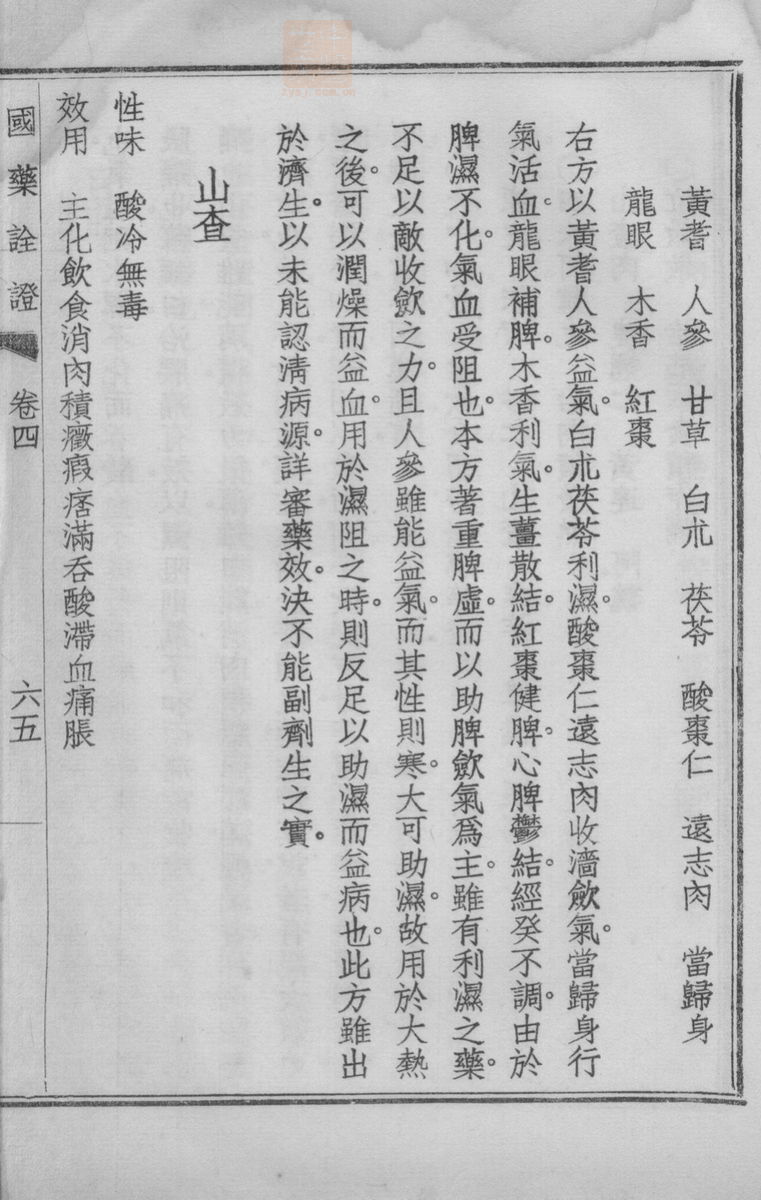 黃耆　人參　甘草　白朮　茯苓　酸棗仁　遠志肉　當歸身
龍眼　木香　紅棗
右方以黃耆人參益氣。白朮茯苓利濕。酸棗仁遠志肉收濇歛氣。當歸身行
氣活血。龍眼補脾。木香利氣。生薑散結。紅棗健脾。心脾鬱結。經癸不調。由於
脾濕不化。氣血受阻也。本方著重脾虛。而以助脾歛氣爲主。雖有利濕之藥。
不足以敵收歛之力。且人參雖能益氣。而其性則寒。大可助濕。故用於大熱
之後。可以潤燥而益血。用於濕阻之時。則反足以助濕而益病也。此方雖出
於濟生。以未能認淸病源。詳審藥效。決不能副劑生之實。
山查
性味　酸冷無毒
效用　主化飲食消肉積癥瘕痞滿吞酸滯血痛脹
國藥詮證　卷四　六五